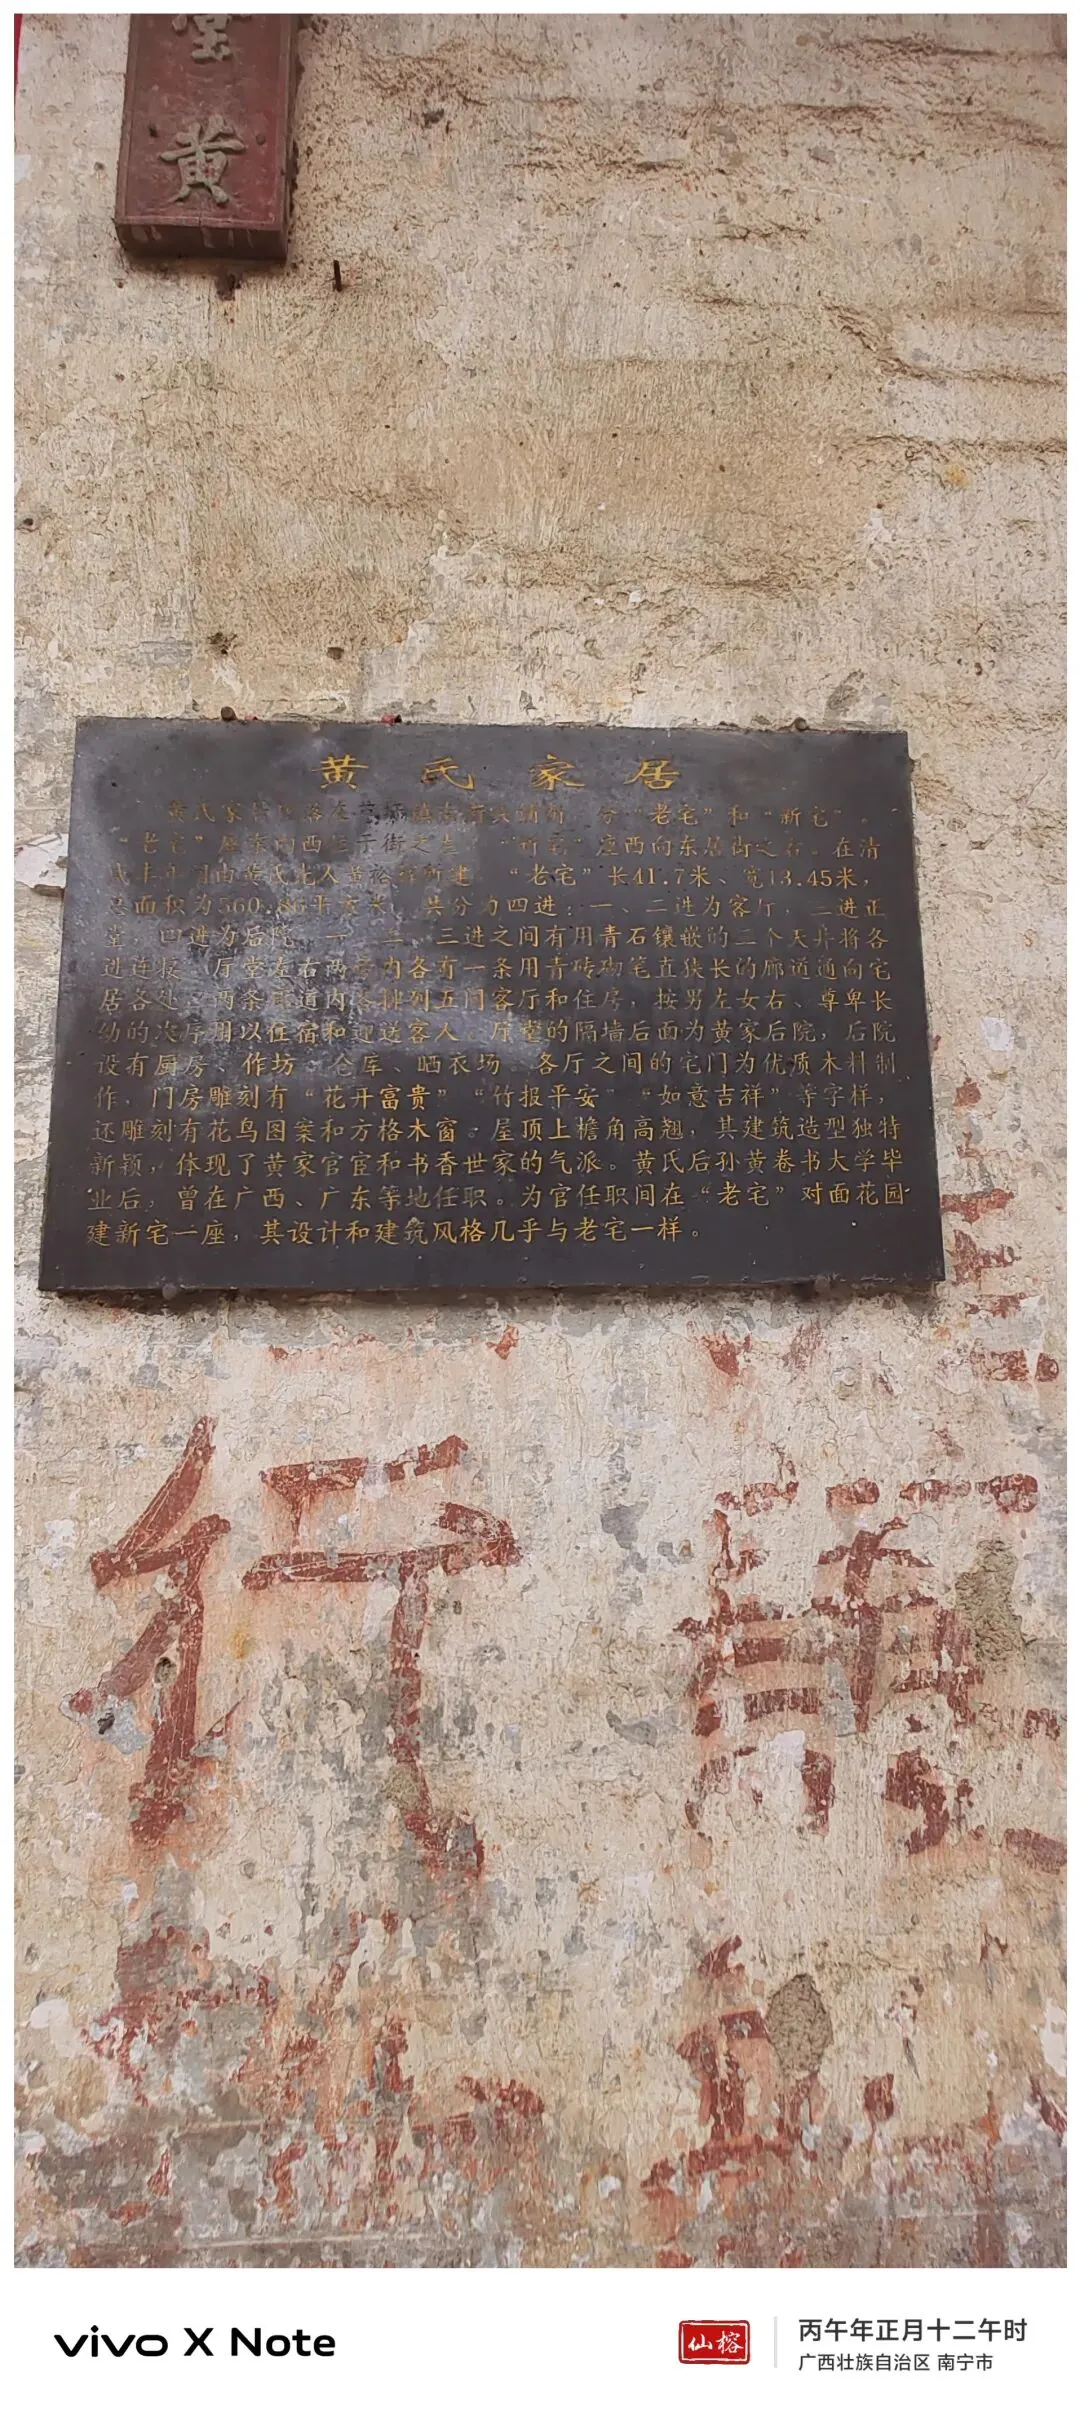 堂
黄
黄氏家居
黄氏家居坐落在 镇 街 分“老宅”和“新宅”。
“老宅”座东向西 于街之 “新宅”座西向东居街之右。在清
咸丰年间由黄氏先人黄 所建 “老宅”长41.7米、宽13.45米,
总面积为560.86平方米, 共分为四进:一、二进为客厅,三进正
堂,四进为后院 一 二、三进之间有用青石镶嵌的三个天井将各
进连接 厅堂左右两旁内各有一条用青砖砌笔直狭长的廊道通向宅
居各处 两条廊道内各排列五间客厅和住房,按男左女右、尊卑长
幼的次序用以住宿和迎送客人。厅堂的隔墙后面为黄家后院,后院
设有厨房、作坊、仓库、晒衣场。各厅之间的宅门为优质木料制
作,门房雕刻有“花开富贵”“竹报平安”“如意吉祥”等字样,
还雕刻有花鸟图案和方格木窗。屋顶上檐角高翘,其建筑造型独特
新颖,体现了黄家官宦和书香世家的气派。黄氏后孙黄卷书大学毕
业后,曾在广西、广东等地任职。为官任职间在“老宅”对面花园
建新宅一座,其设计和建筑风格几乎与老宅一样。
行
vivo X Note
仙榕
丙午年正月十二午时
广西壮族自治区 南宁市